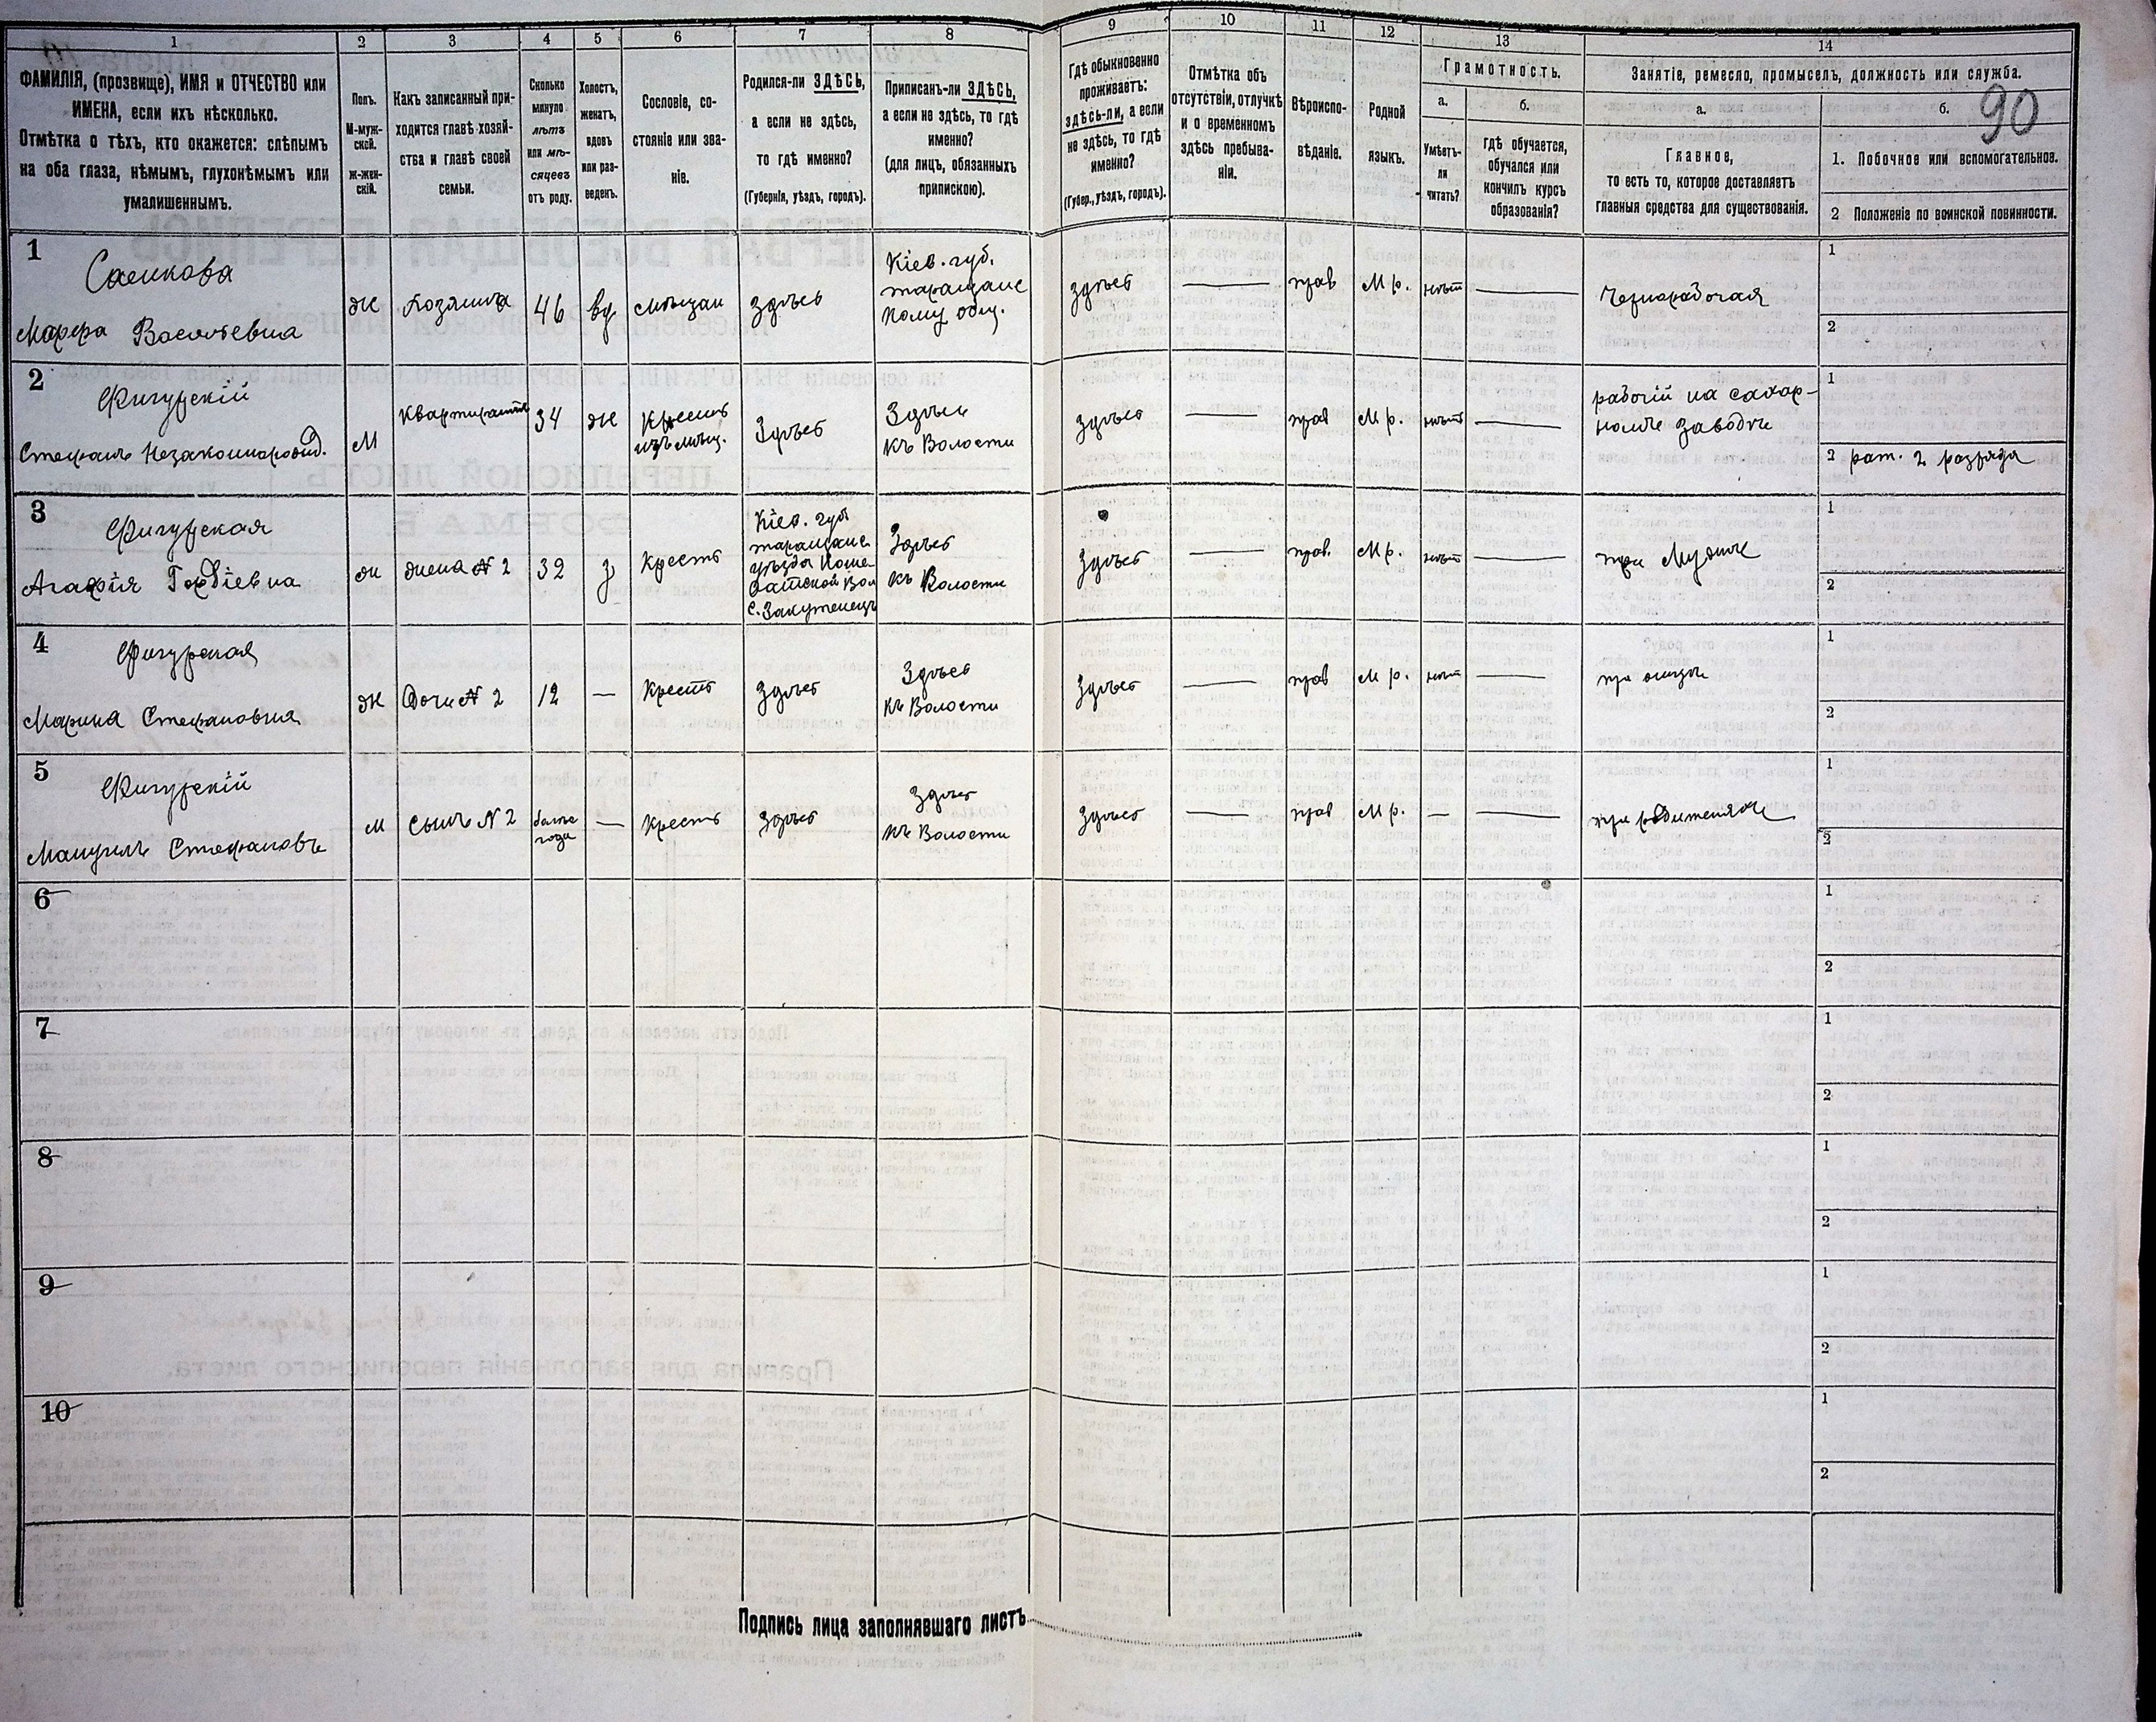 1 2 3 4 5 6 7 8 9 10 11 12 13 14
ФАМИЛІЯ, (прозвище), ИМЯ и ОТЧЕСТВО или
ИМЕНА, если ихъ нѣсколько.
Отмѣтка о тѣхъ, кто окажется: слѣпымъ
на оба глаза, нѣмымъ, глухонѣмымъ или
умалишеннымъ.
Полъ.
М-муж-
ской.
ж-жен-
скій.
Какъ записанный при-
ходится главѣ хозяй-
ства и главѣ своей
семьи.
Сколько
минуло
лѣтъ
или мѣ-
сяцевъ
отъ роду.
Холостъ,
женатъ,
вдовъ
или раз-
веденъ.
Сословіе, со-
стояніе или зва-
ніе.
Родился-ли ЗДѢСЬ,
а если не здѣсь,
то гдѣ именно?
(Губернія, уѣздъ, городъ).
Приписанъ-ли ЗДѢСЬ,
а если не здѣсь, то гдѣ
именно?
(для лицъ, обязанныхъ
припискою).
Гдѣ обыкновенно
проживаетъ:
здѣсь-ли, а если
не здѣсь, то гдѣ
именно?
(Губер., уѣздъ, городъ).
Отмѣтка объ
отсутствіи, отлучкѣ
и о временномъ
здѣсь пребыва-
ніи.
Вѣроиспо-
вѣданіе.
Родной
языкъ.
Грамотность.
а.
Умѣетъ-
ли
читать?
б.
гдѣ обучается,
обучался или
кончилъ курсъ
образованія?
Занятіе, ремесло, промыселъ, должность или служба.
а.
Главное,
то есть то, которое доставляетъ
главныя средства для существованія.
б.
90
1. Побочное или вспомогательное.
2 Положеніе по воинской повинности.
1
Марфа Васильевна
ж
Хозяйка
46
вд
мѣщан
Здѣсь
Кіев. губ.
таращанс
кому общ.
здѣсь
—
прав
М р.
нѣт
—
Чернорабочая
1
2
2
Фигурскій
Стефанъ Незаконнорожд.
М
Квартирантъ
34
ж
Крестъ
изъ мѣщ.
Здѣсь
Здѣсь
къ Волости
здѣсь
—
прав
М р.
нѣтъ
—
рабочій на сахар-
номъ заводѣ
1
2 рат. 2 разряда
3
Фигурская
Агафія Гордіевна
ж
жена № 2
32
з
Крестъ
Кіев. губ
таращанс.
уѣзда
С. Закутенецъ
Здѣсь
къ Волости
Здѣсь
—
прав.
М р.
нѣт
—
при Мужѣ
1
2
4
Фигурская
Марина Стефановна
ж
Дочь № 2
12
—
Крестъ
Здѣсь
Здѣсь
къ Волости
Здѣсь
—
прав
М р.
нѣт
—
при отцѣ
1
2
5
Фигурскій
Мануилъ Стефановъ
м
сынъ № 2
года
—
Крестъ
Здѣсь
Здѣсь
къ Волости
Здѣсь
—
прав
М р.
—
—
при родителяхъ
1
2
6
1
2
7
1
2
8
1
2
9
1
2
10
1
2
Подпись лица заполнявшаго листъ